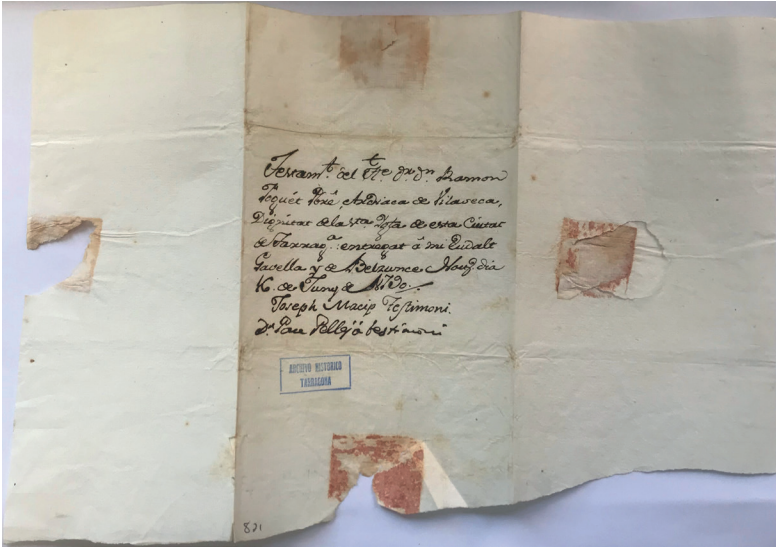 Testamt. del Itre. Dr. Dn. Ramon
Foguét Pbre., Ardiaca de Vilaseca,
Dignitat de la Sta. de esta Ciutat
de Tarragª. entregat â mi Eudalt
y de Belzunce dia
de Juny de
Joseph Macip Testimoni.
Dr. Pau Pellejà testimoni
ARCHIVO HISTORICO
TARRAGONA
821